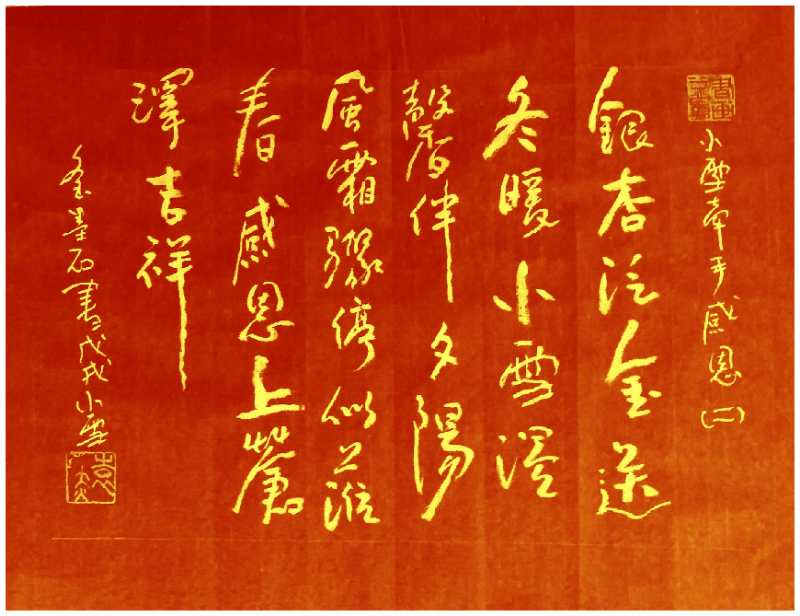 小雪牽手感恩(二)
銀杏泛金送
冬暖小雪漫
馨伴夕陽
風霜驟停似蒞
春感恩上蒼
澤吉祥
墨石書戊戌小雪